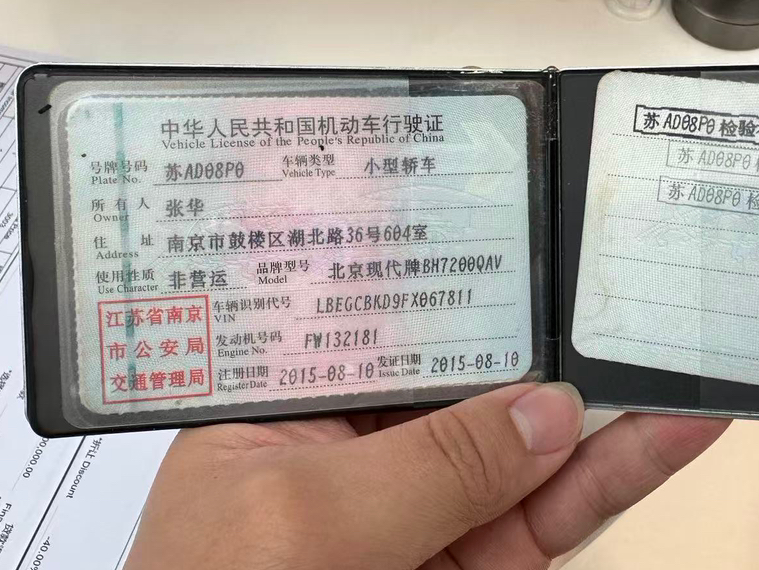 中华人民共和国机动车行驶证
Vehicle License of the People's Republic of China
号牌号码 苏AD08P0 车辆类型 小型轿车
Plate No. Vehicle Type
所有人 张华
Owner
住址 南京市鼓楼区湖北路36号604室
Address
使用性质 非营运 品牌型号 北京现代牌BH7200QAV
Use Character Model
江苏省南京
市公安局
交通管理局
车辆识别代号 LBEGCBKD9FX067811
VIN
发动机号码 FW132181
Engine No.
注册日期 2015-08-10 发证日期 2015-08-10
Register Date Issue Date
苏AD08P0 检验
苏AD08P0
苏AD08P0 检
折让 Discount
00,000.00
40.00%